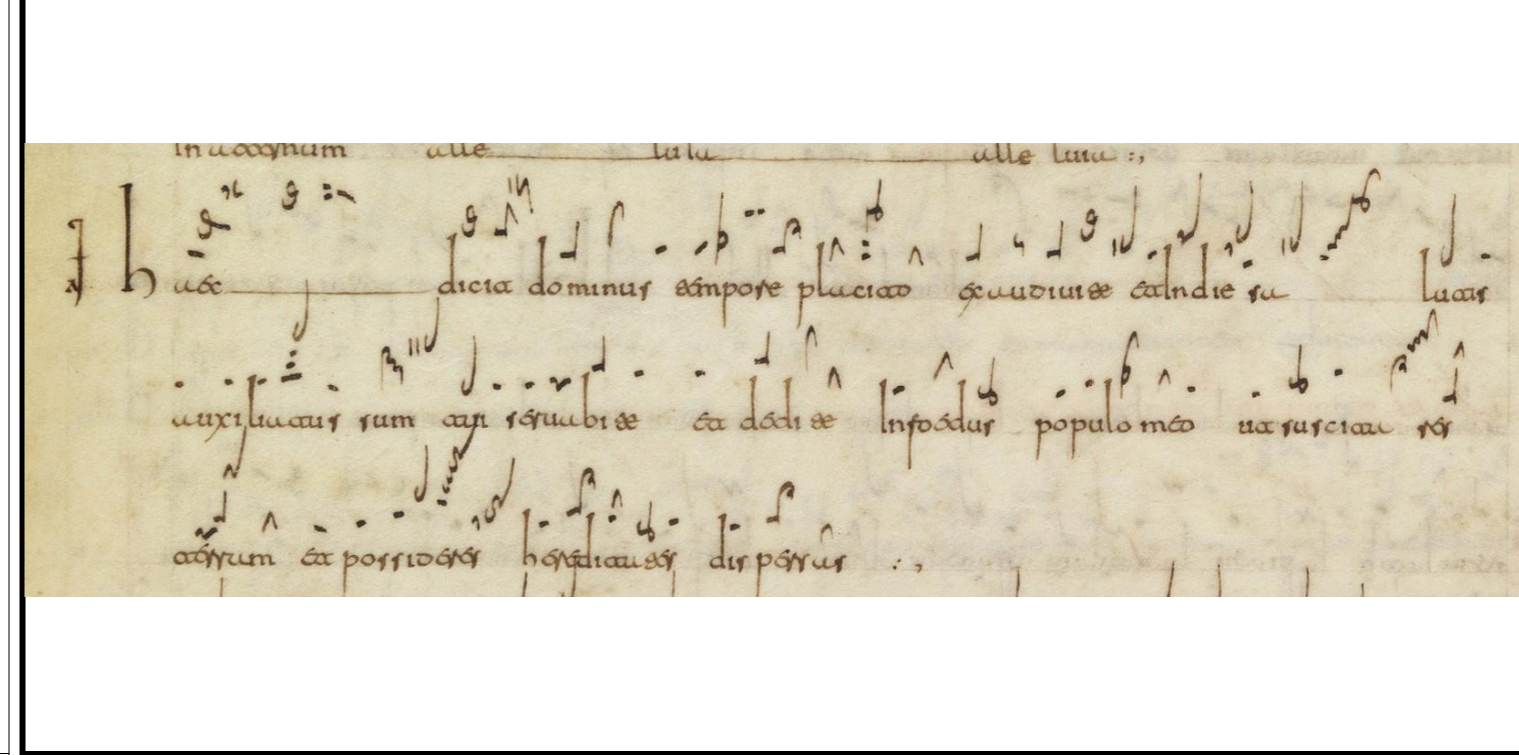 in aeternum alle luia alle luia
haec dicit dominus tempore placito exaudivi te et In die salutis
auxiliatus sum tui servabi te et dedi te In foedus populo meo ut suscitares
terram et possideres hereditates dispersas